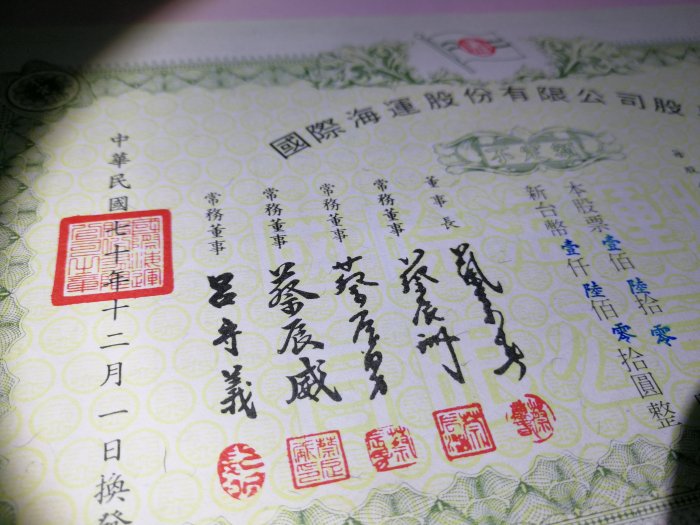 國際海運股份有限公司股
本股票壹佰陸拾零
新台幣壹仟陸佰零拾圓整
董事長
常務董事 蔡辰洲
常務董事 蔡辰男
常務董事 蔡辰威
常務董事 呂守義
中華民國七十年十二月一日換發